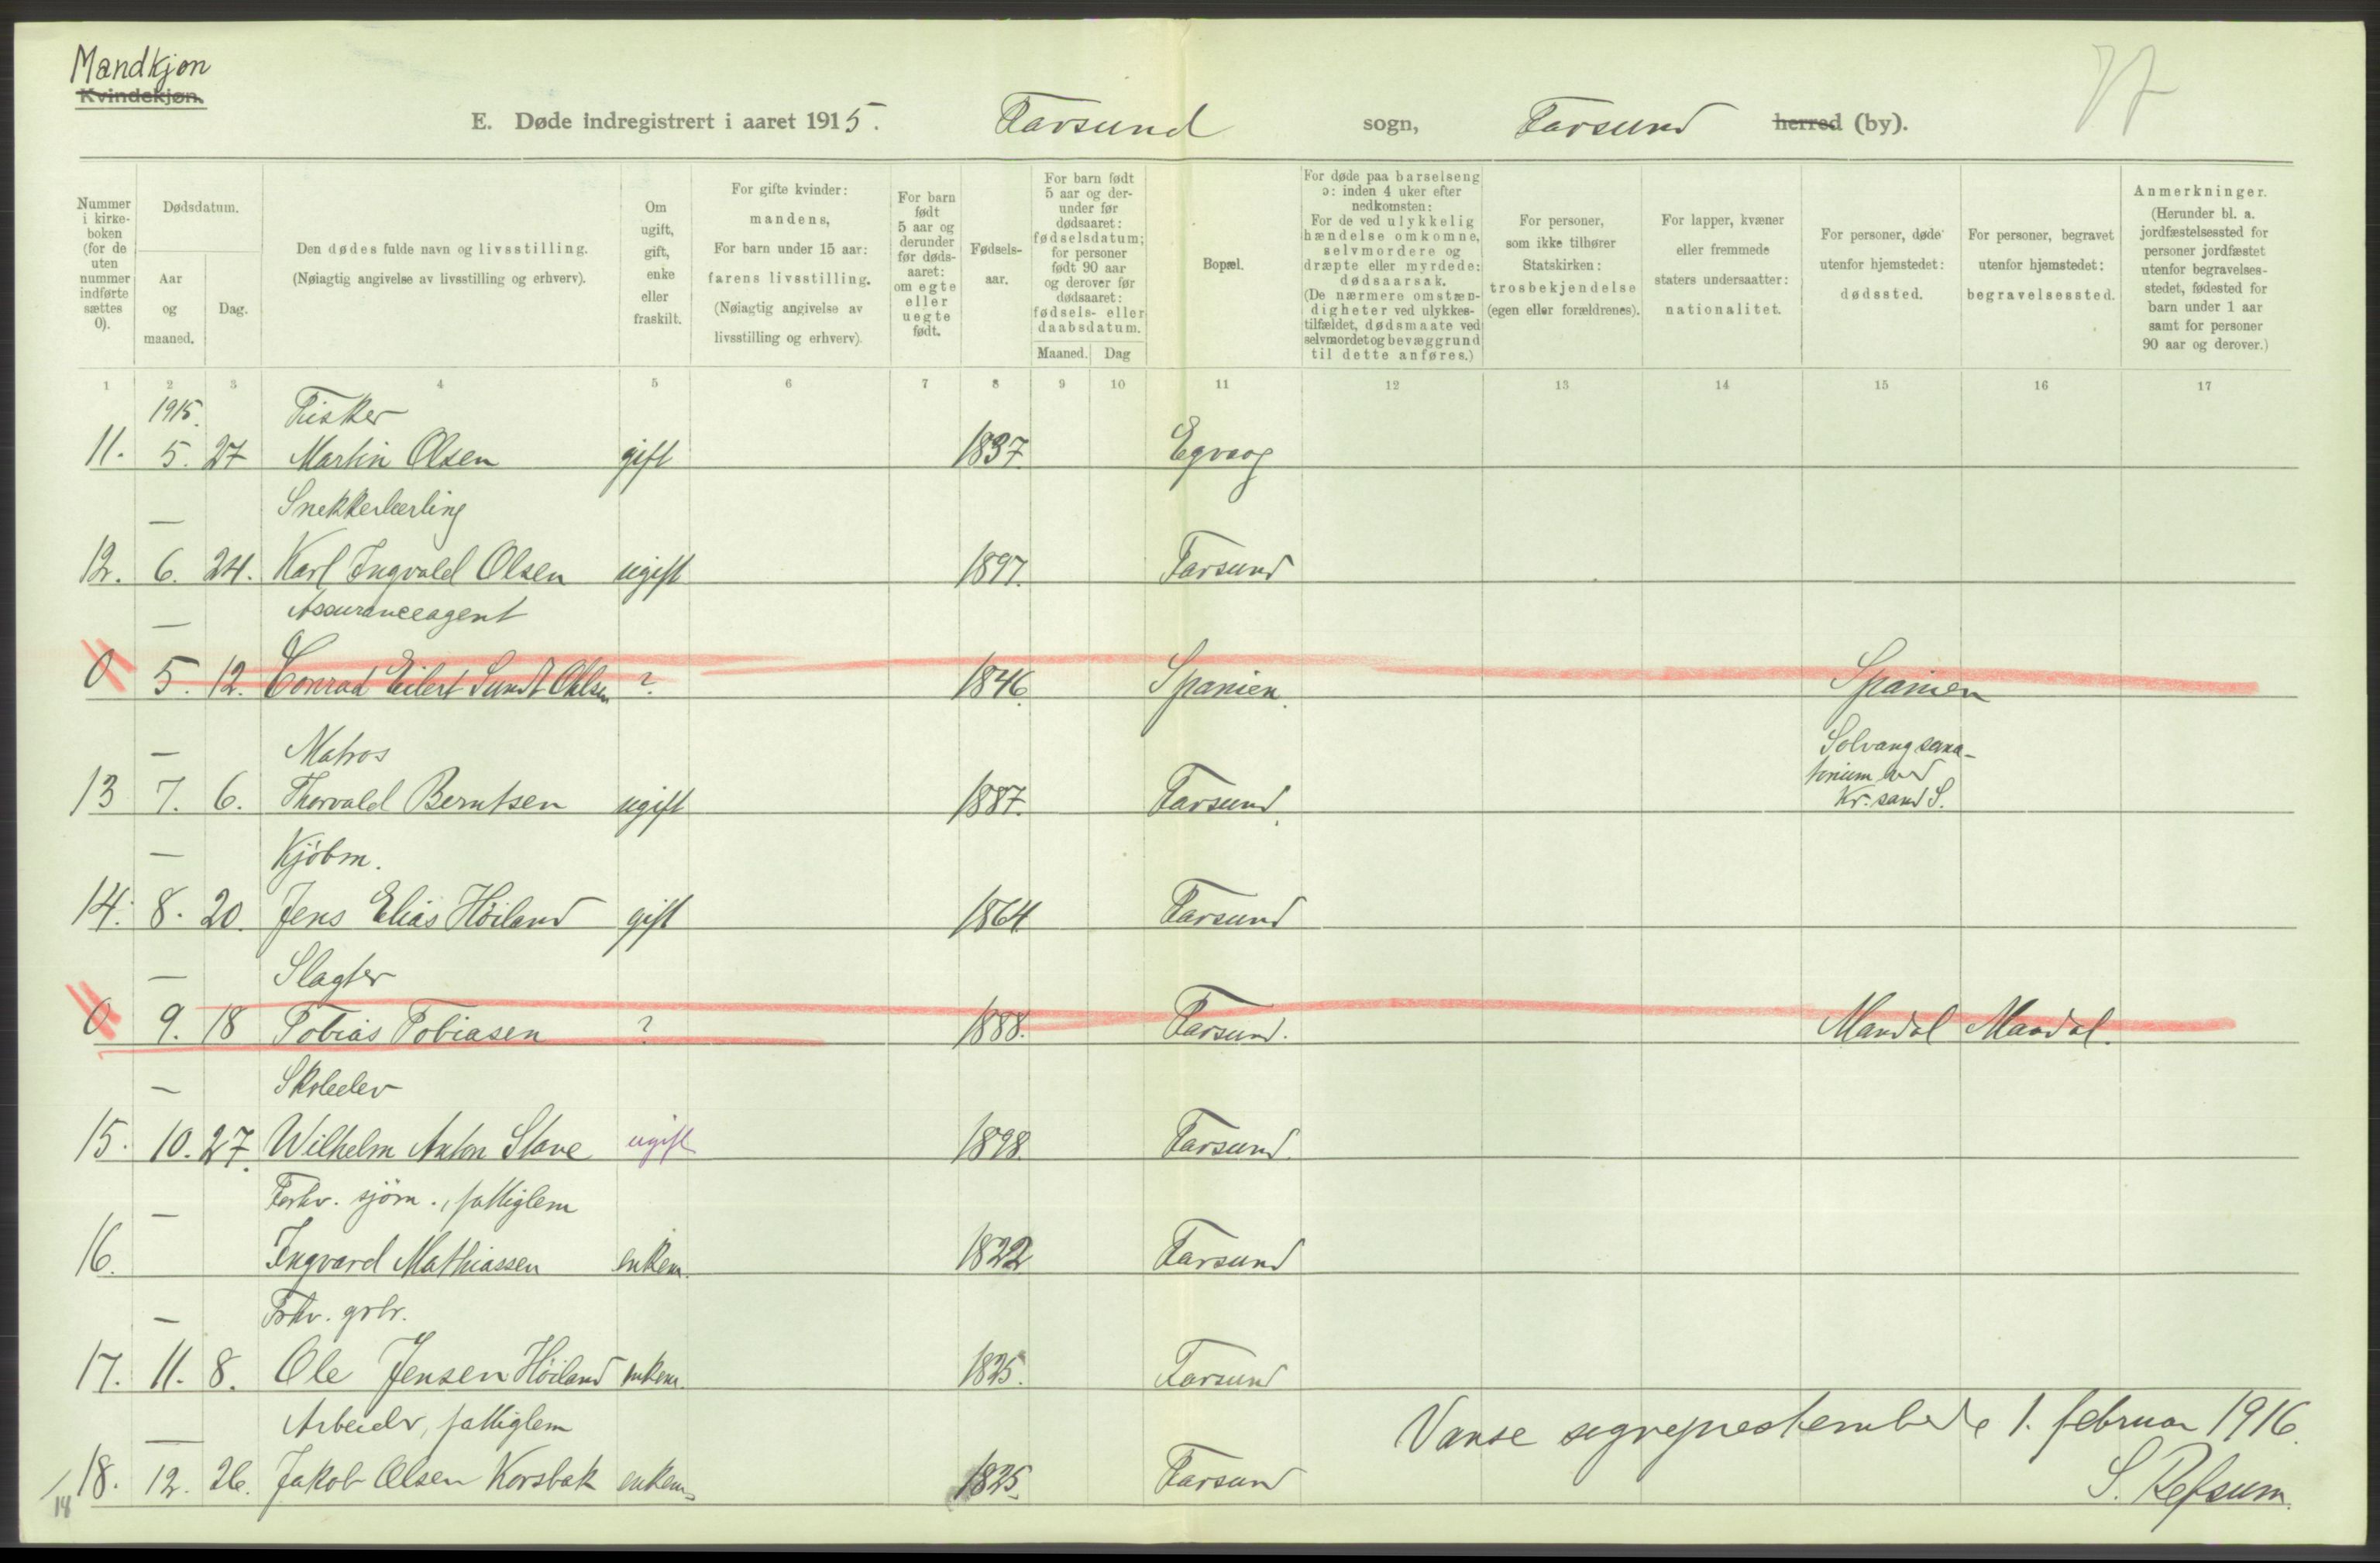 Mandkjøn
Kvindekjøn.
77
E. Døde indregistrert i aaret 1915. Farsund sogn, Farsund herred (by).
Nummer i kirke-boken (for de uten nummer indførte sættes 0).
Dødsdatum.
Aar og maaned.
Dag.
Den dødes fulde navn og livsstilling.
(Nøiagtig angivelse av livsstilling og erhverv).
Om ugift, gift, enke eller fraskilt.
For gifte kvinder: mandens,
For barn under 15 aar: farens livsstilling.
(Nøiagtig angivelse av livsstilling og erhverv).
For barn født 5 aar og derunder før døds-aaret: om egte eller uegte født.
Fødsels-aar.
For barn født 5 aar og der-under før dødsaaret: fødselsdatum; for personer født 90 aar og derover før dødsaaret: fødsels- eller daabsdatum.
Maaned. Dag
Bopæl.
For døde paa barselseng ɔ: inden 4 uker efter nedkomsten:
For de ved ulykkelig hændelse omkomne, selvmordere og dræpte eller myrdede: dødsaarsak.
(De nærmere omstæn-digheter ved ulykkes-tilfældet, dødsmaate ved selvmordet og bevæggrund til dette anføres.)
For personer, som ikke tilhører Statskirken: trosbekjendelse (egen eller forældrenes).
For lapper, kvæner eller fremmede staters undersaatter: nationalitet.
For personer, døde utenfor hjemstedet: dødssted.
For personer, begravet utenfor hjemstedet: begravelsessted.
Anmerkninger.
(Herunder bl. a. jordfæstelsessted for personer jordfæstet utenfor begravelses-stedet, fødested for barn under 1 aar samt for personer 90 aar og derover.)
1 2 3 4 5 6 7 8 9 10 11 12 13 14 15 16 17
1915. Fisker
11. 5. 27 Martin Olsen gift 1837. Egvaag
— Snekkerlærling
12. 6. 24. Karl Ingvald Olsen ugift 1897. Farsund
— Assuranceagent
0 5. 12. Conrad Eilert Sundt Ohlsen ? 1846. Spanien. Spanien
— Matros Solvang sana-
torium ved
13 7. 6. Thorvald Berntsen ugift 1887. Farsund. Kr.sand S.
— Kjöbm.
14. 8. 20. Jens Elias Höiland gift 1864 Farsund
— Slagter
0 9. 18 Tobias Tobiasen ? 1888. Farsund. Mandal Mandal.
— Skoleelev
15. 10. 27. Wilhelm Anton Stave ugift 1898. Farsund.
— Forhv. sjöm., fattiglem
16. Ingvard Mathiassen enkem. 1822 Farsund
— Forhv. grbr.
17. 11. 8. Ole Jensen Höiland enkem. 1825. Farsund
— Arbeider, fattiglem
18. 12. 26. Jakob Olsen Korsbak enkem. 1825. Farsund
18
Vanse sogneprestembede 1. februar 1916.
S. Refsum.